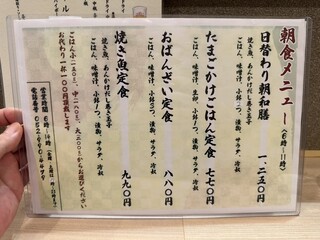 朝食メニュー(6時〜11時)
日替わり朝和膳 一、二五〇円
焼き魚、あんかけだし巻き玉子
ごはん、味噌汁、小鉢二つ、漬物、サラダ、冷奴
たまごかけごはん定食 七七〇円
ごはん、味噌汁、生卵、小鉢一つ、漬物、サラダ、冷奴
おばんざい定食 八八〇円
ごはん、味噌汁、小鉢三つ、漬物、サラダ、冷奴
焼き魚定食 九九〇円
焼き魚、あんかけだし巻き玉子
ごはん、味噌汁、小鉢一つ、漬物、サラダ、冷奴
お代わり一杯 100円頂戴します
営業時間 6時〜14時
電話番号 052